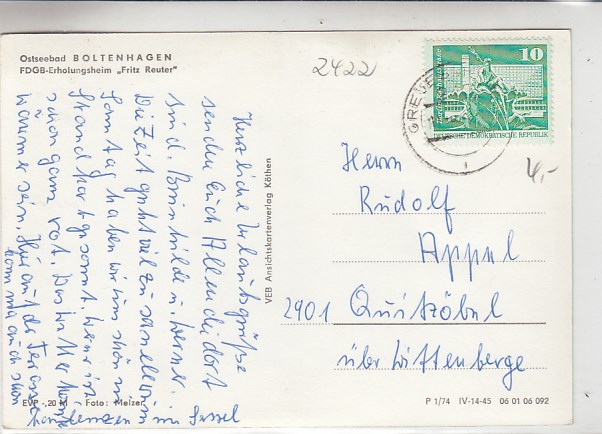 Ostseebad BOLTENHAGEN
FDGB-Erholungsheim „Fritz Reuter"
2422
10
DEUTSCHE DEMOKRATISCHE REPUBLIK
GREVE
4,-
Herrn
Rudolf
Appel
2901 Quitzöbel
über Wittenberge
Herzliche Urlaubsgrüße
senden Euch Allen die dort
sind. Brunhilde u. Werner.
Die Zeit geht viel zu schnell hin
Sonntag haben wir uns schön am
Strand gesonnt. Werner ist
schon ganz rot. Das Wetter könnte
wärmer sein. Hier auf der Terrasse
kann man auch schon
im Sessel
VEB Ansichtskartenverlag Köthen
EVP -,20 M Foto: Melzer
P 1/74 IV-14-45 06 01 06 092